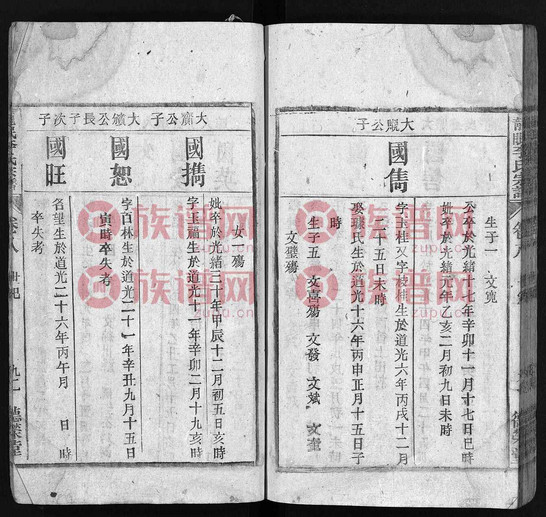 公卒於光緒十七年辛卯十一月十七日巳時
妣卒於光緒元年乙亥二月初九日未時
生子一 文寬
大贚公子
國儁
字玉桂又字稜樹生於道光六年丙戌十二月
二十五日未時
娶璩氏生於道光十六年丙申正月十五日子
時
生子五 文喜殤 文發 文斌 文奎
文璧殤
女 殤
妣卒於光緒三十年甲辰十二月初五日亥時
大公子
國攜
字玉福生於道光十一年辛卯二月十九亥時
大公長子
國恕
字百林生於道光二十一年辛丑九月十五日
寅時卒失考
次子
國旺
名望生於道光二十六年丙午月 日 時
卒失考
卷八 世紀 九二 德榮堂
族谱网
zupu.cn